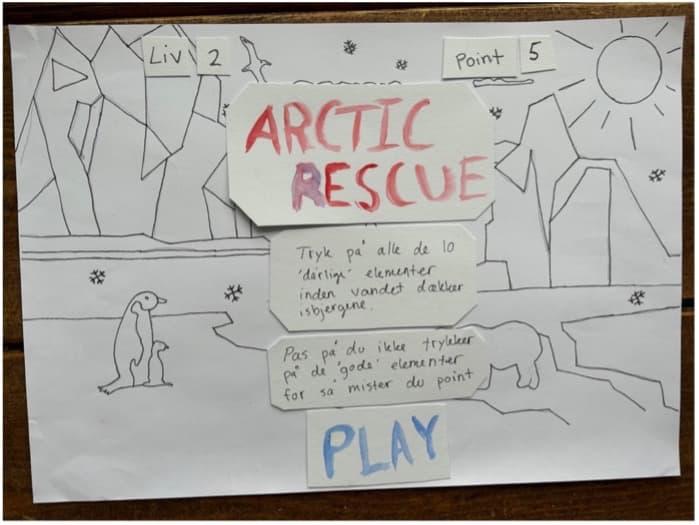 Liv 2
Point 5
ARCTIC
RESCUE
Tryk på alle de 10
'dårlige' elementer
inden vandet dækker
isbjergene.
Pas på du ikke trykker
på de 'gode' elementer
for så mister du point
PLAY